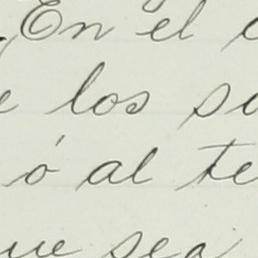 En el
los
ó al te
que sea